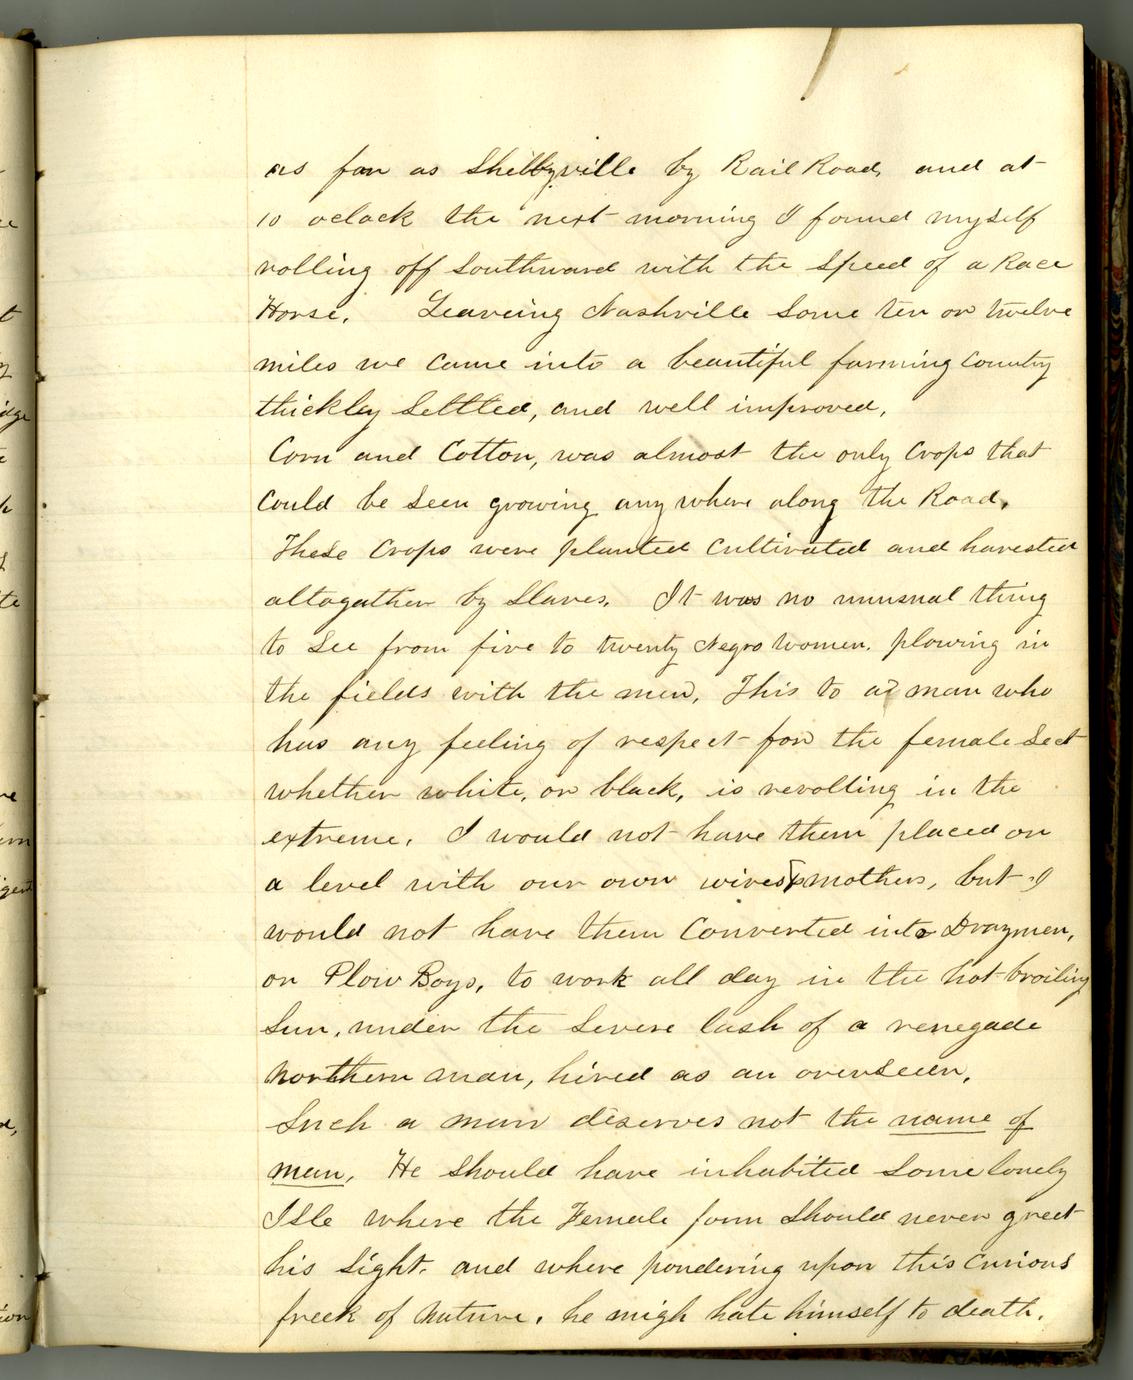 as far as Shelbyville by Rail Road, and at
10 oclock the next morning I found myself
rolling off Southward with the Speed of a Race
Horse. Leaveing Nashville Some ten or twelve
miles we came into a beautiful farming Country
thickley Settled, and well improved,
Corn and Cotton, was almost the only Crops that
Could be Seen growing any where along the Road.
These Crops were planted Cultivated and harested
altogather by Slaves. It was no unusual thing
to See from five to twenty Negro women. plowing in
the fields with the men, This to a man who
has any feeling of respect for the female Sect
whether white, or black, is revolting in the
extreme. I would not have them placed on
a level with our own wives & mothers, but I
would not have them Converted into Draymen,
or Plow Boys, to work all day in the hot broiling
Sun, under the Severe lash of a renegade
Northern man, hired as an overseeer,
Such a man deserves not the name of
man, He Should have inhabited Some lonely
Isle where the Female form Should never greet
his Sight. and where pondering upon this Curious
freek of Nature. he migh hate himself to death.